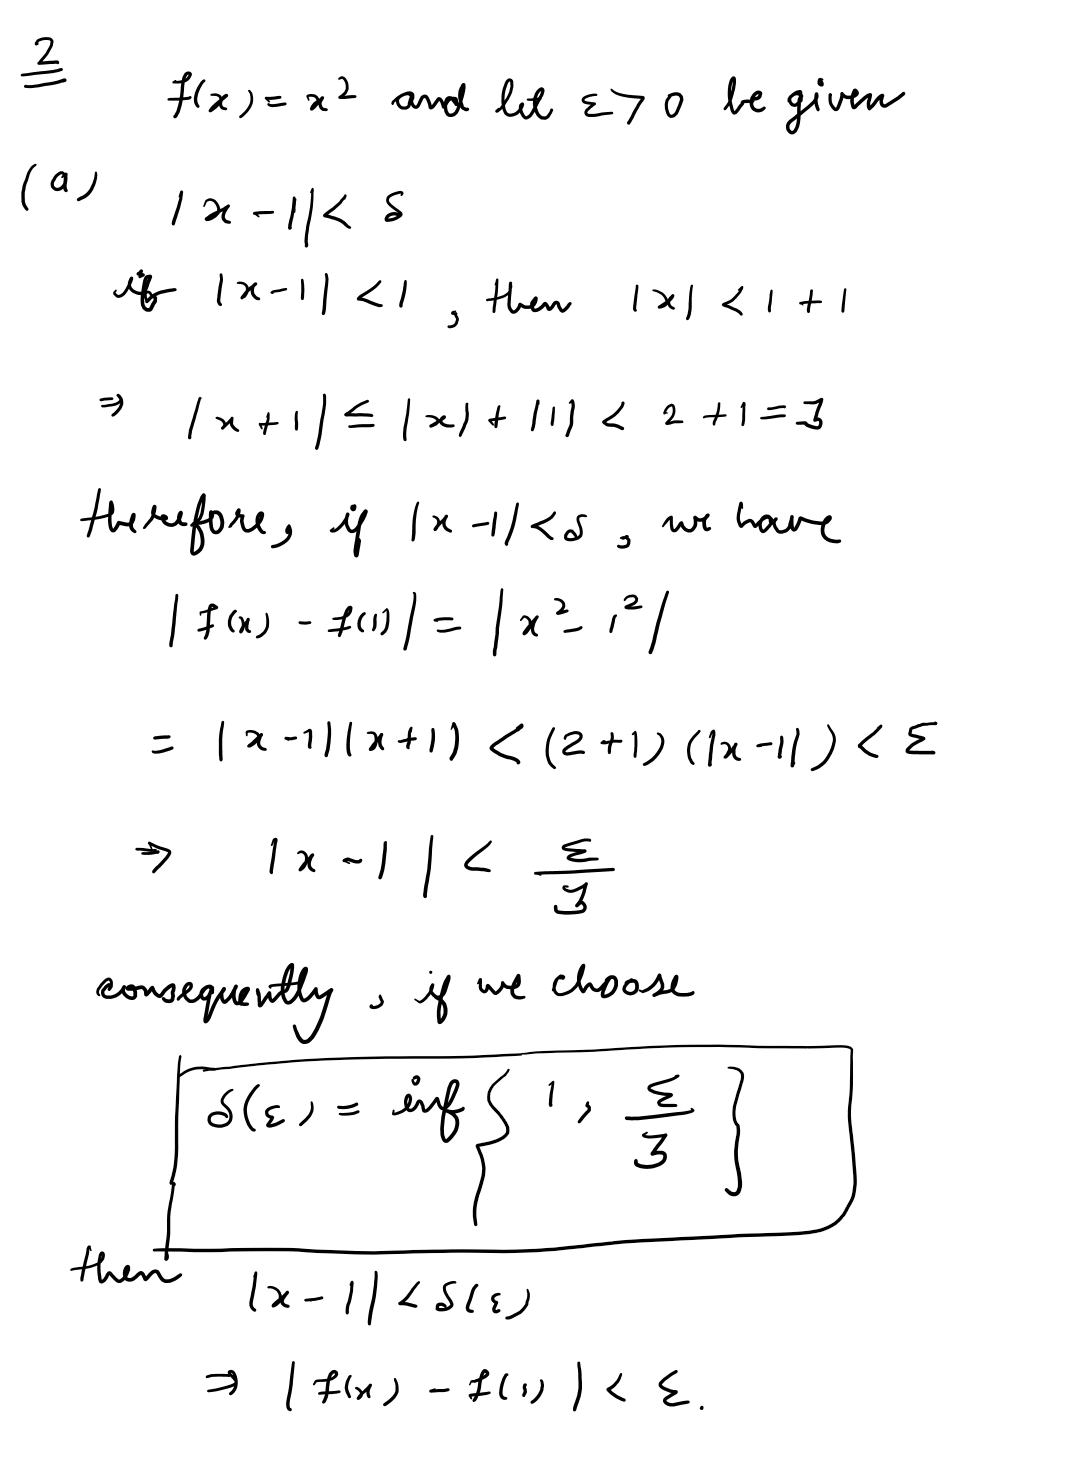 2
f(x) = x² and let ε > 0 be given
(a)
|x - 1| < δ
if |x-1| < 1, then |x| < 1 + 1
⇒ |x + 1| ≤ |x| + |1| < 2 + 1 = 3
therefore, if |x - 1| < δ, we have
|f(x) - f(1)| = |x² - 1²|
= |x-1||x+1| < (2+1) (|x-1|) < ε
⇒ |x - 1| < ε/3
consequently, if we choose
δ(ε) = inf { 1, ε/3 }
then
|x - 1| < δ(ε)
⇒ |f(x) - f(1)| < ε.